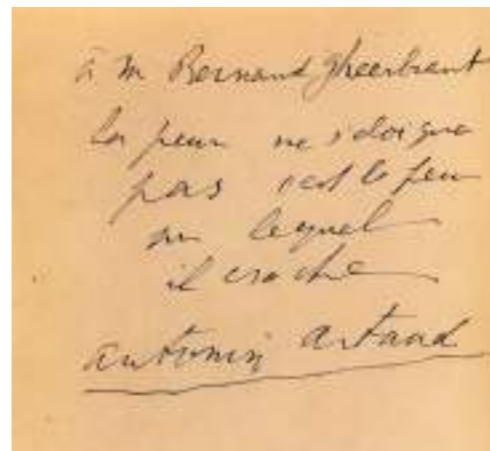 à M Bernard Gheerbrant
La peur ne s'éloigne
pas c'est le feu
sur lequel
il crache
antonin artaud